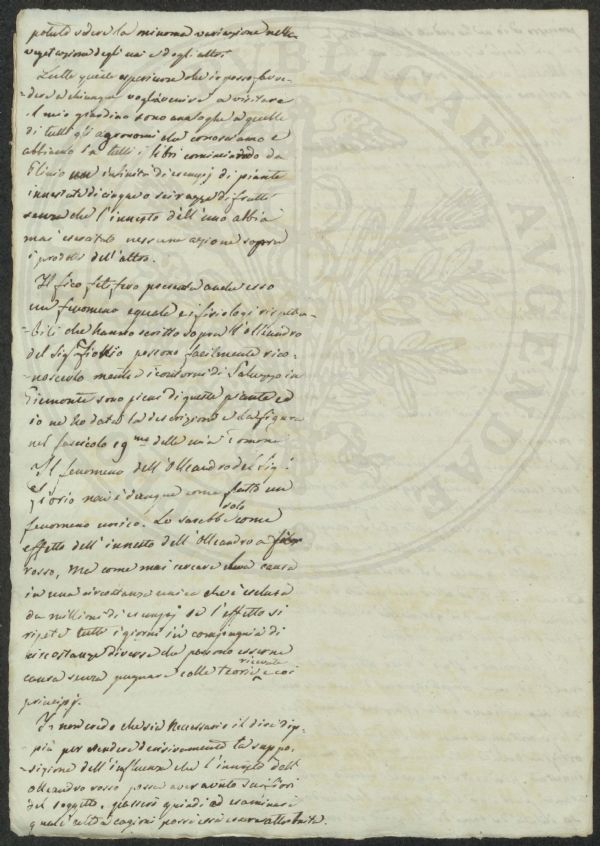 potuto vedere la minoma variazione nella
vegetazione degli uni e degli altri.
Tutte queste esperienze che io posso far ve-
dere a chiunque voglia venire a visitare
il mio giardino sono analoghe a quelle
di tutti gli agronomi che conosciamo e
abbiamo in tutti i libri cominciando da
Plinio un infinità di esempj di piante
innestate di cinque o sei razze di frutti
senza che l'innesto dell'uno abbia
mai esercitato nessuna azione sopra
i prodotti dell'altro.
Il fico fetifero presenta anche esso
un fenomeno eguale e i fisiologi rispetta-
bili che hanno scritto sopra l'olleandro
del Sig. possono facilmente rico-
noscerlo mentre i contorni di Saluzzo in
Piemonte sono pieni di queste piante ed
io ne ho data la descrizione e la figura
nel fascicolo 19 delle mia Pomona
Il fenomeno dell'Olleandro del Sig.
non è dunque come fatto un
fenomeno unico. Lo sarebbe solo come
effetto dell'innesto dell'Olleandro a fior
rosso, ma come mai cercare una causa
in una circostanza unica che è esclusa
da millioni di esempj se l'effetto si
ripete tutti i giorni in compagnia di
circostanze diverse che possono esserne
causa senza pugnare colle teorie ricevute e coi
principj.
Io non credo che sia necessario il dire di
più per escludere decisivamente la suppo-
sizione dell'influenza che l'innesto dell'
Olleandro rosso possa aver avuto sui fiori
del soggetto, passerò quindi ad esaminare
quale altra cagione possi essere attribuito.